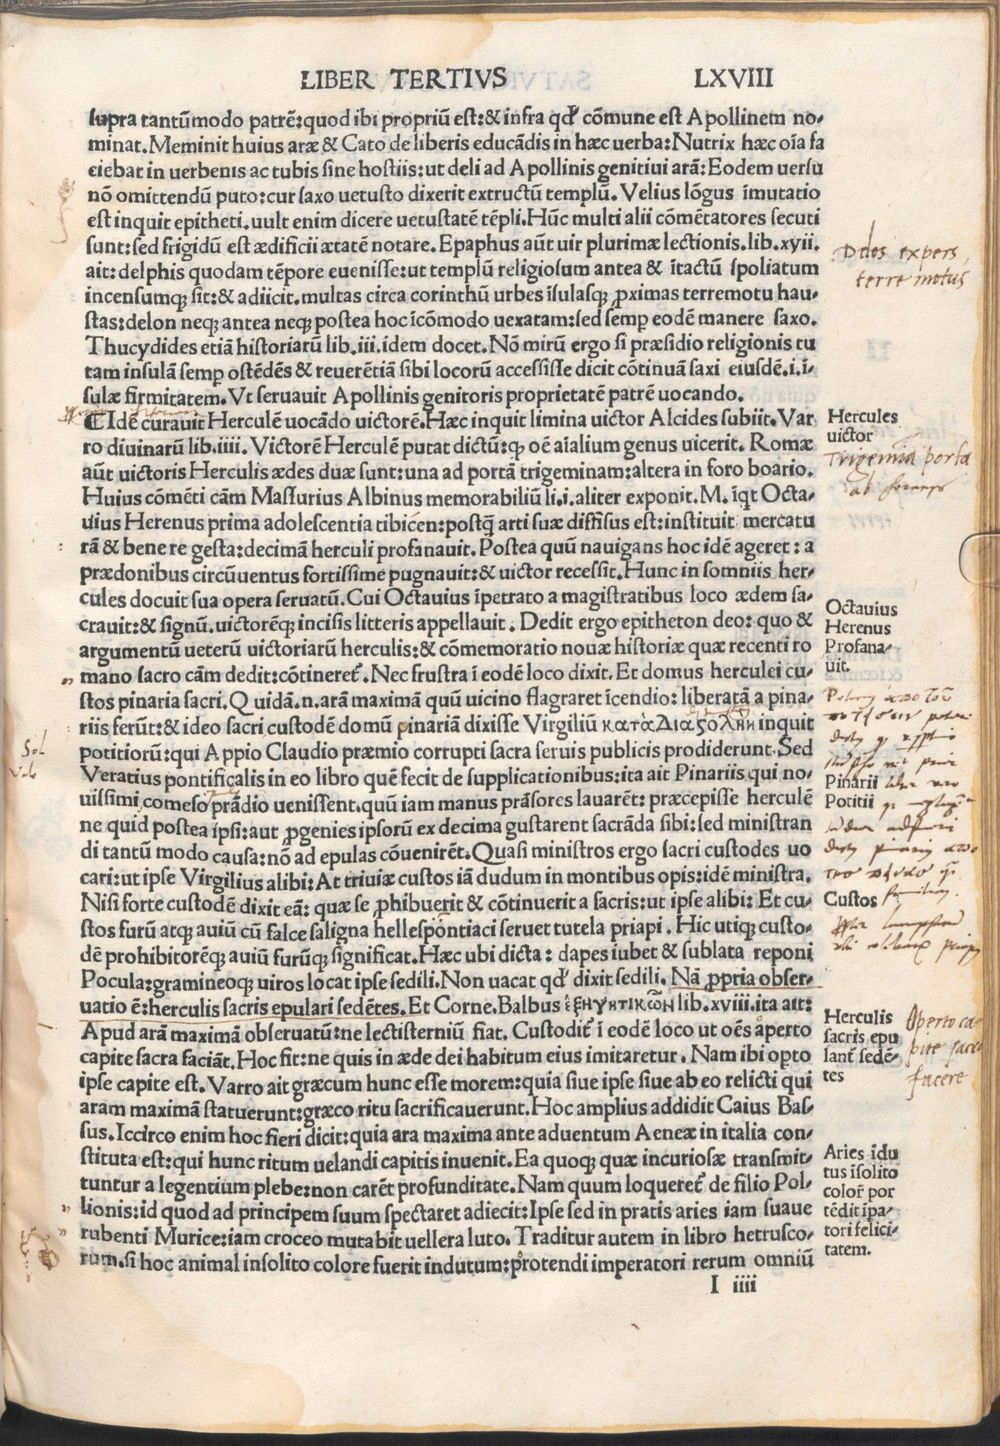 LIBER TERTIVS LXVIII
supra tantũmodo patrẽ:quod ibi propriũ est:& infra qđ cõmune est Apollinem no-
minat.Meminit huius aræ & Cato de liberis educãdis in hæc uerba:Nutrix hæc oĩa fa
ciebat in uerbenis ac tubis sine hostiis:ut deli ad Apollinis genitiui arã:Eodem uersu
nõ omittendũ puto:cur saxo uetusto dixerit extructũ templũ.Velius lõgus ĩmutatio
est inquit epitheti.uult enim dicere uetustatẽ tẽpli.Hũc multi alii cõmẽtatores secuti
sunt:sed frigidũ est ædificii ætatẽ notare.Epaphus aũt uir plurimæ lectionis.lib.xyii.
ait:delphis quodam tẽpore euenisse:ut templũ religiosum antea & ĩtactũ spoliatum
incensumqꝫ sit:& adiicit.multas circa corinthũ urbes ĩsulasqꝫ ꝓximas terremotu hau-
stas:delon neqꝫ antea neqꝫ postea hoc ĩcõmodo uexatam:sed semꝑ eodẽ manere saxo.
Thucydides etiã historiarũ lib.iii.idem docet.Nõ mirũ ergo si præsidio religionis tu
tam insulã semꝑ ostẽdẽs & reuerẽtiã sibi locorũ accessisse dicit cõtinuã saxi eiusdẽ.i.ĩ-
sulæ firmitatem.Vt seruauit Apollinis genitoris proprietatẽ patrẽ uocando.
⁋Idẽ curauit Herculẽ uocãdo uictorẽ.Hæc inquit limina uictor Alcides subiit.Var
ro diuinarũ lib.iiii.Victorẽ Herculẽ putat dictũ:ꝙ oẽ aĩalium genus uicerit. Romæ
aũt uictoris Herculis ædes duæ sunt:una ad portã trigeminam:altera in foro boario.
Huius cõmẽti cãm Massurius Albinus memorabiliũ li.i.aliter exponit.M.ĩqt Octa-
uius Herenus prima adolescentia tibicen:postq̃ arti suæ diffisus est:instituit mercatu
rã & bene re gesta:decimã herculi profanauit.Postea quũ nauigans hoc idẽ ageret:a
prædonibus circũuentus fortissime pugnauit:& uictor recessit.Hunc in somniis her-
cules docuit sua opera seruatũ.Cui Octauius ĩpetrato a magistratibus loco ædem sa-
crauit:& signũ.uictorẽqꝫ incisis litteris appellauit. Dedit ergo epitheton deo:quo &
argumentũ ueterũ uictoriarũ herculis:& cõmemoratio nouæ historiæ quæ recenti ro
mano sacro cãm dedit:cõtineret᷑.Nec frustra ĩ eodẽ loco dixit.Et domus herculei cu-
stos pinaria sacri.Quidã.n.arã maximã quũ uicino flagraret ĩcendio:liberatã a pina-
riis ferũt:& ideo sacri custodẽ domũ pinariã dixisse Virgiliũ κατὰ διαςολὴν inquit
potitiorũ:qui Appio Claudio præmio corrupti sacra seruis publicis prodiderunt.Sed
Veratius pontificalis in eo libro quẽ fecit de supplicationibus:ita ait Pinariis qui no-
uissimi comeso prãdio uenissent.quũ iam manus prãsores lauarẽt: præcepisse herculẽ
ne quid postea ipsi:aut ꝓgenies ipsorũ ex decima gustarent sacrãda sibi:sed ministran
di tantũ modo causa:nõ ad epulas cõuenirẽt.Quasi ministros ergo sacri custodes uo
cari:ut ipse Virgilius alibi:At triuiæ custos iã dudum in montibus opis:idẽ ministra.
Nisi forte custodẽ dixit eã: quæ se ꝓhibuerit & cõtinuerit a sacris:ut ipse alibi: Et cu-
stos furũ atqꝫ auiũ cũ falce saligna hellespontiaci seruet tutela priapi.Hic utiqꝫ custo-
dẽ prohibitorẽqꝫ auiũ furũqꝫ significat.Hæc ubi dicta: dapes iubet & sublata reponi
Pocula:gramineoqꝫ uiros locat ipse sedili.Non uacat qđ dixit sedili.Nã ꝓpria obser-
uatio ẽ:herculis sacris epulari sedẽtes.Et Corne.Balbus ἐξηγητικῶν lib.xviii.ita ait:
Apud arã maximã obseruatũ:ne lectisterniũ fiat. Custodit᷑ ĩ eodẽ loco ut oẽs aperto
capite sacra faciãt.Hoc fit:ne quis in æde dei habitum eius imitaretur.Nam ibi opto
ipse capite est.Varro ait græcum hunc esse morem:quia siue ipse siue ab eo relicti qui
aram maximã statuerunt:græco ritu sacrificauerunt.Hoc amplius addidit Caius Bas-
sus.Iccirco enim hoc fieri dicit:quia ara maxima ante aduentum Aeneæ in italia con-
stituta est:qui hunc ritum uelandi capitis inuenit.Ea quoqꝫ quæ incuriosæ transmit-
tuntur a legentium plebe:non carẽt profunditate.Nam quum loqueret᷑ de filio Pol-
lionis:id quod ad principem suum spectaret adiecit:Ipse sed in pratis aries iam suaue
rubenti Murice:iam croceo mutabit uellera luto. Traditur autem in libro hetrusco-
rum.si hoc animal insolito colore fuerit indutum:protendi imperatori rerum omniũ
I iiii
Delos expers
terre motus
Hercules
uictor
Trigemiã porta
Octauius
Herenus
Profana-
uit.
Pinarii
Potitii
Custos
Herculis
sacris epu
lant᷑ sedẽ-
tes
Aperto ca-
pite sacra
facere
Aries ĩdu
tus ĩsolito
color᷑ por
tẽdit ĩpa-
tori felici-
tatem.